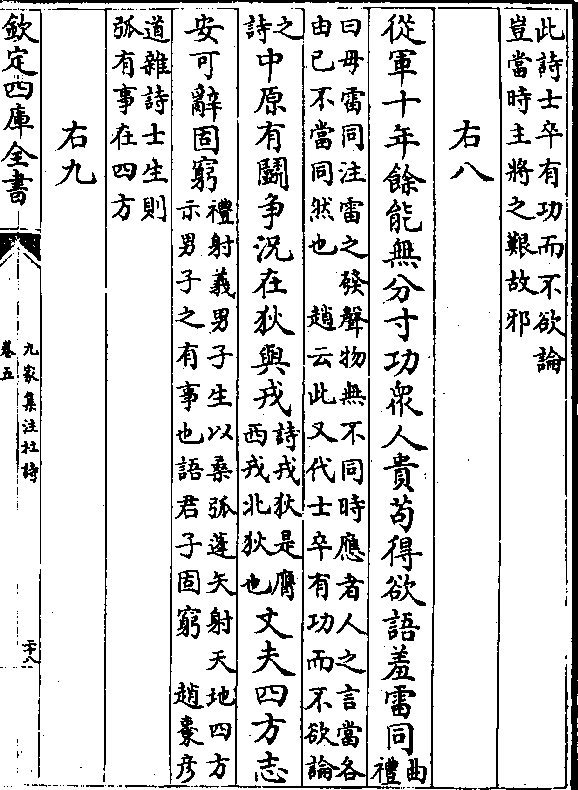 此詩士卒有功而不欲論
豈當時主將之艱故邪
右八
從軍十年餘能無分寸功衆人貴苟得欲語羞雷同曲禮
曰毋雷同注雷之發聲物無不同時應者人之言當各
由已不當同然也　趙云此又代士卒有功而不欲論
之詩中原有鬭争況在狄與戎詩戎狄是膺西戎北狄也丈夫四方志
安可辭固窮禮射義男子生以桑弧蓬矢射天地四方示男子之有事也語君子固窮　趙棗彦
道雜詩士生則
弧有事在四方
右九
欽定四庫全書
九家集注杜詩
卷五
二十八